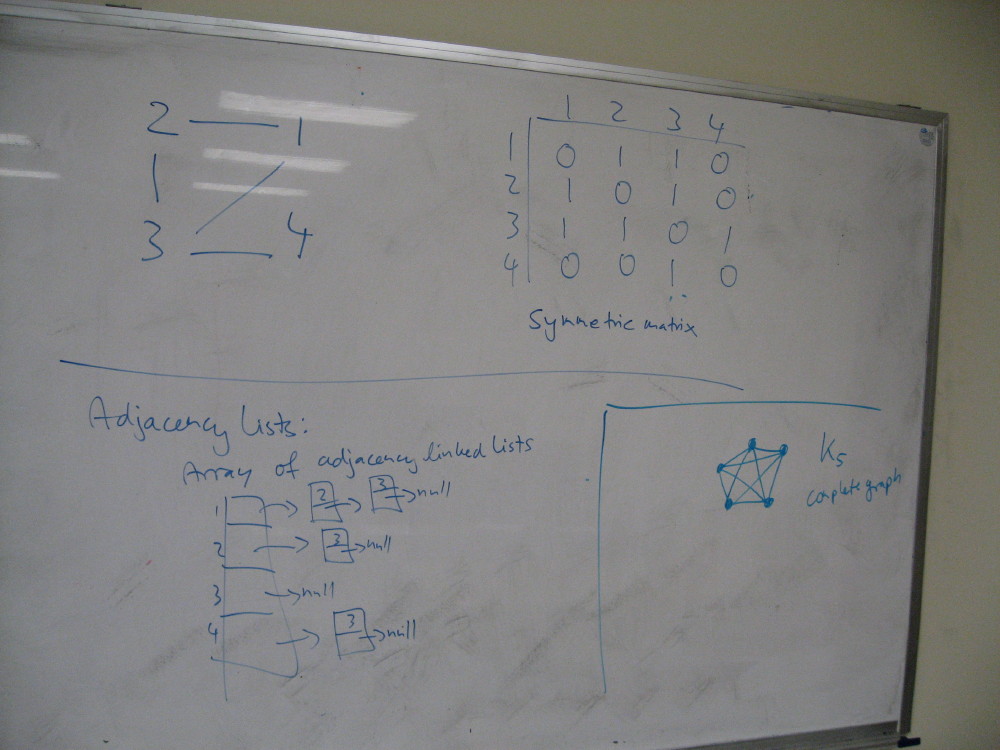 2 1
3 4
1 2 3 4
1 0 1 1 0
2 1 0 1 0
3 1 1 0 1
4 0 0 1 0
Symmetric matrix
Adjacency Lists:
Array of adjacency linked lists
1 2 3 null
2 3 null
3 null
4 3 null
K5
complete graph